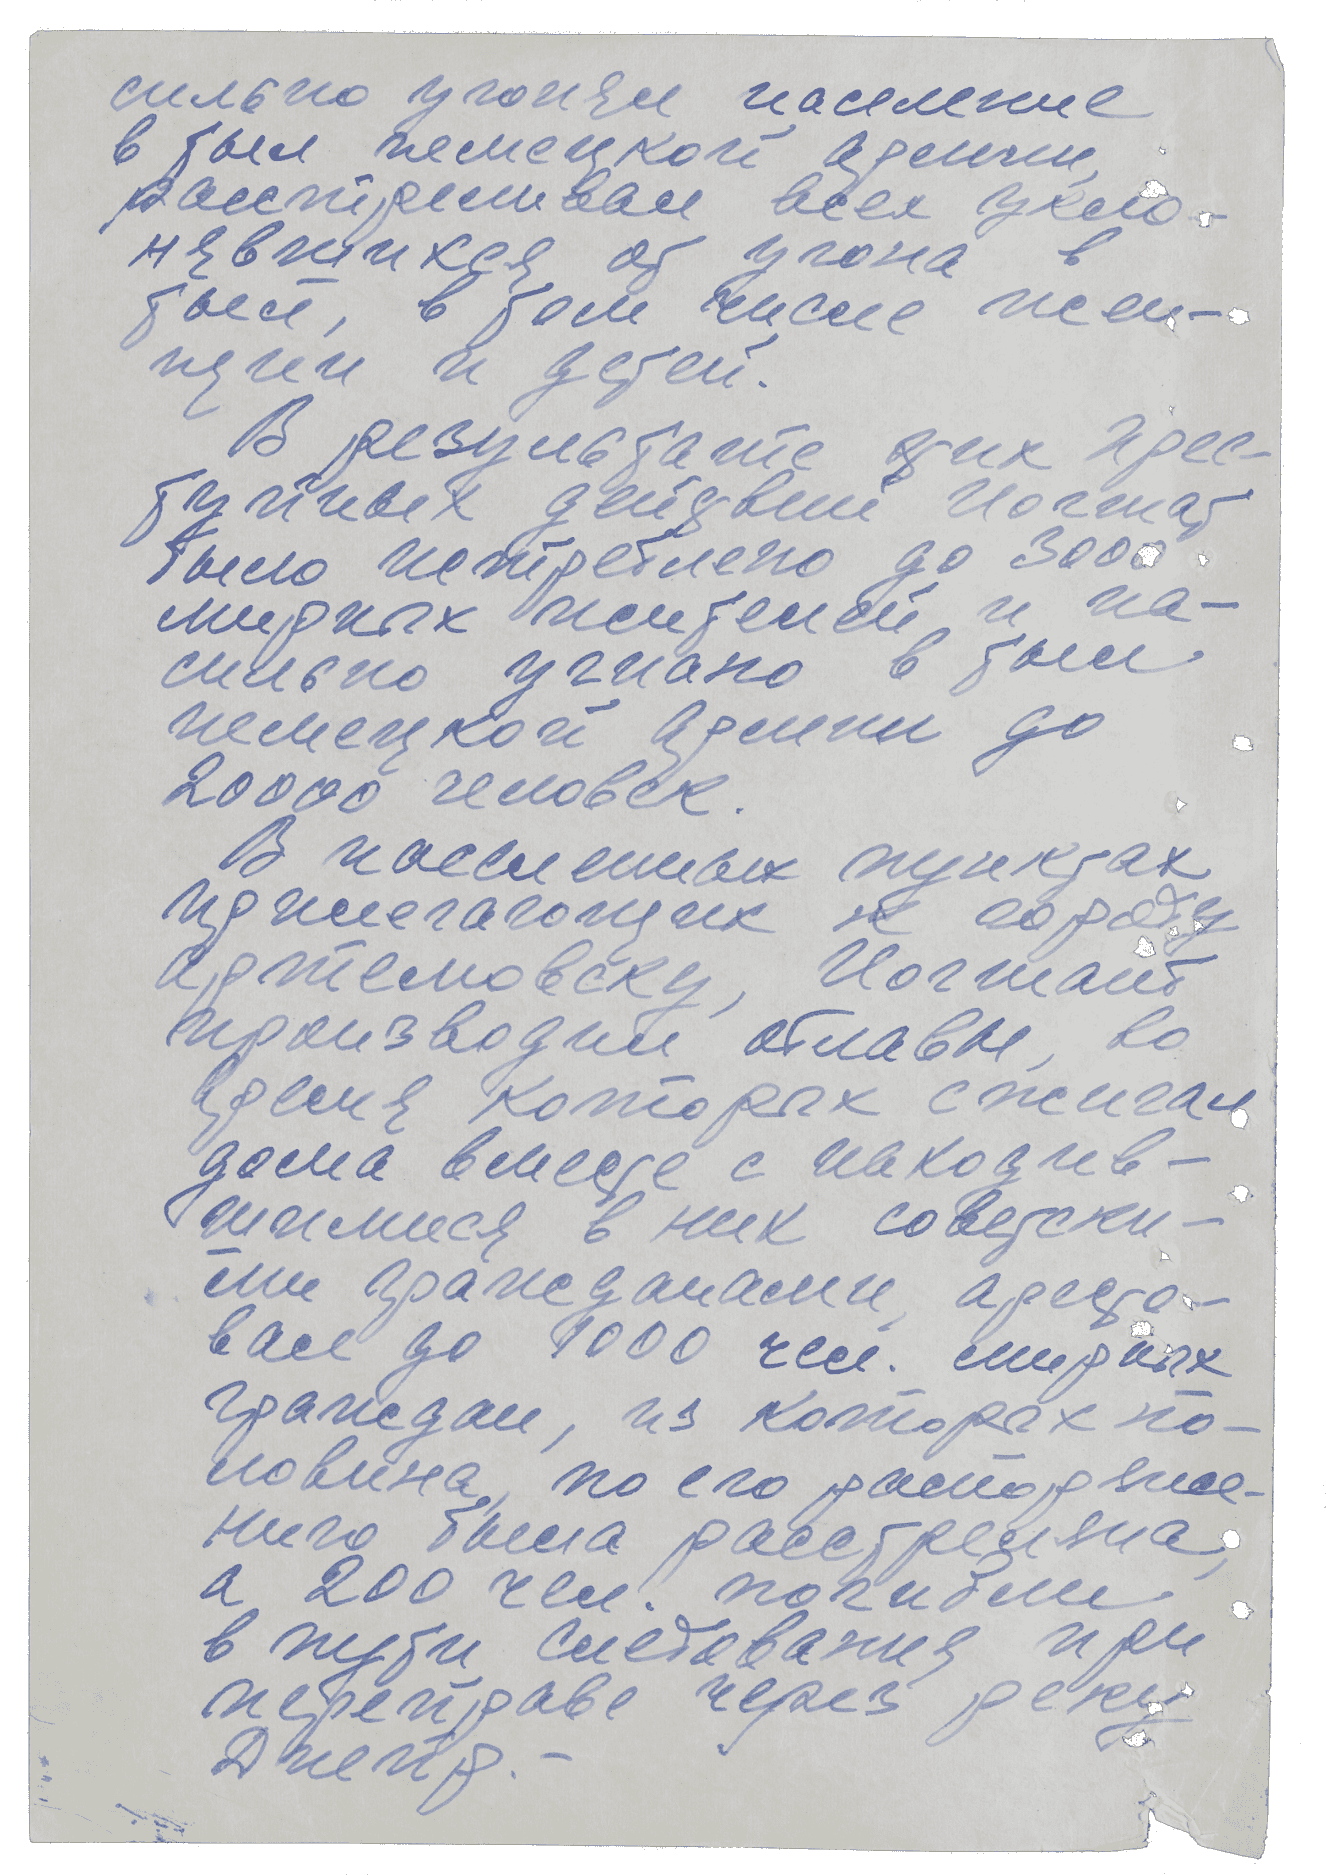 сильно угонял население
в тыл немецкой армии,
расстреливал всех укло-
нявшихся от угона в
тыл, в том числе жен-
щин и детей.
В результате этих прес-
тупных действий Ногжат
было истреблено до 3000
мирных жителей и на-
сильно угнано в тыл
немецкой армии до
20000 человек.
В населенных пунктах
прилегающих к городу
Артемовску,
производил облавы, во
время которых сжигал
дома вместе с находив-
шимися в них советски-
ми гражданами, аресто-
вал до 1000 чел. мирных
граждан, из которых по-
ловина, по его распоряже-
нию была расстреляна,
а 200 чел. погибли
в пути следования при
переправе через реку
Днепр. –